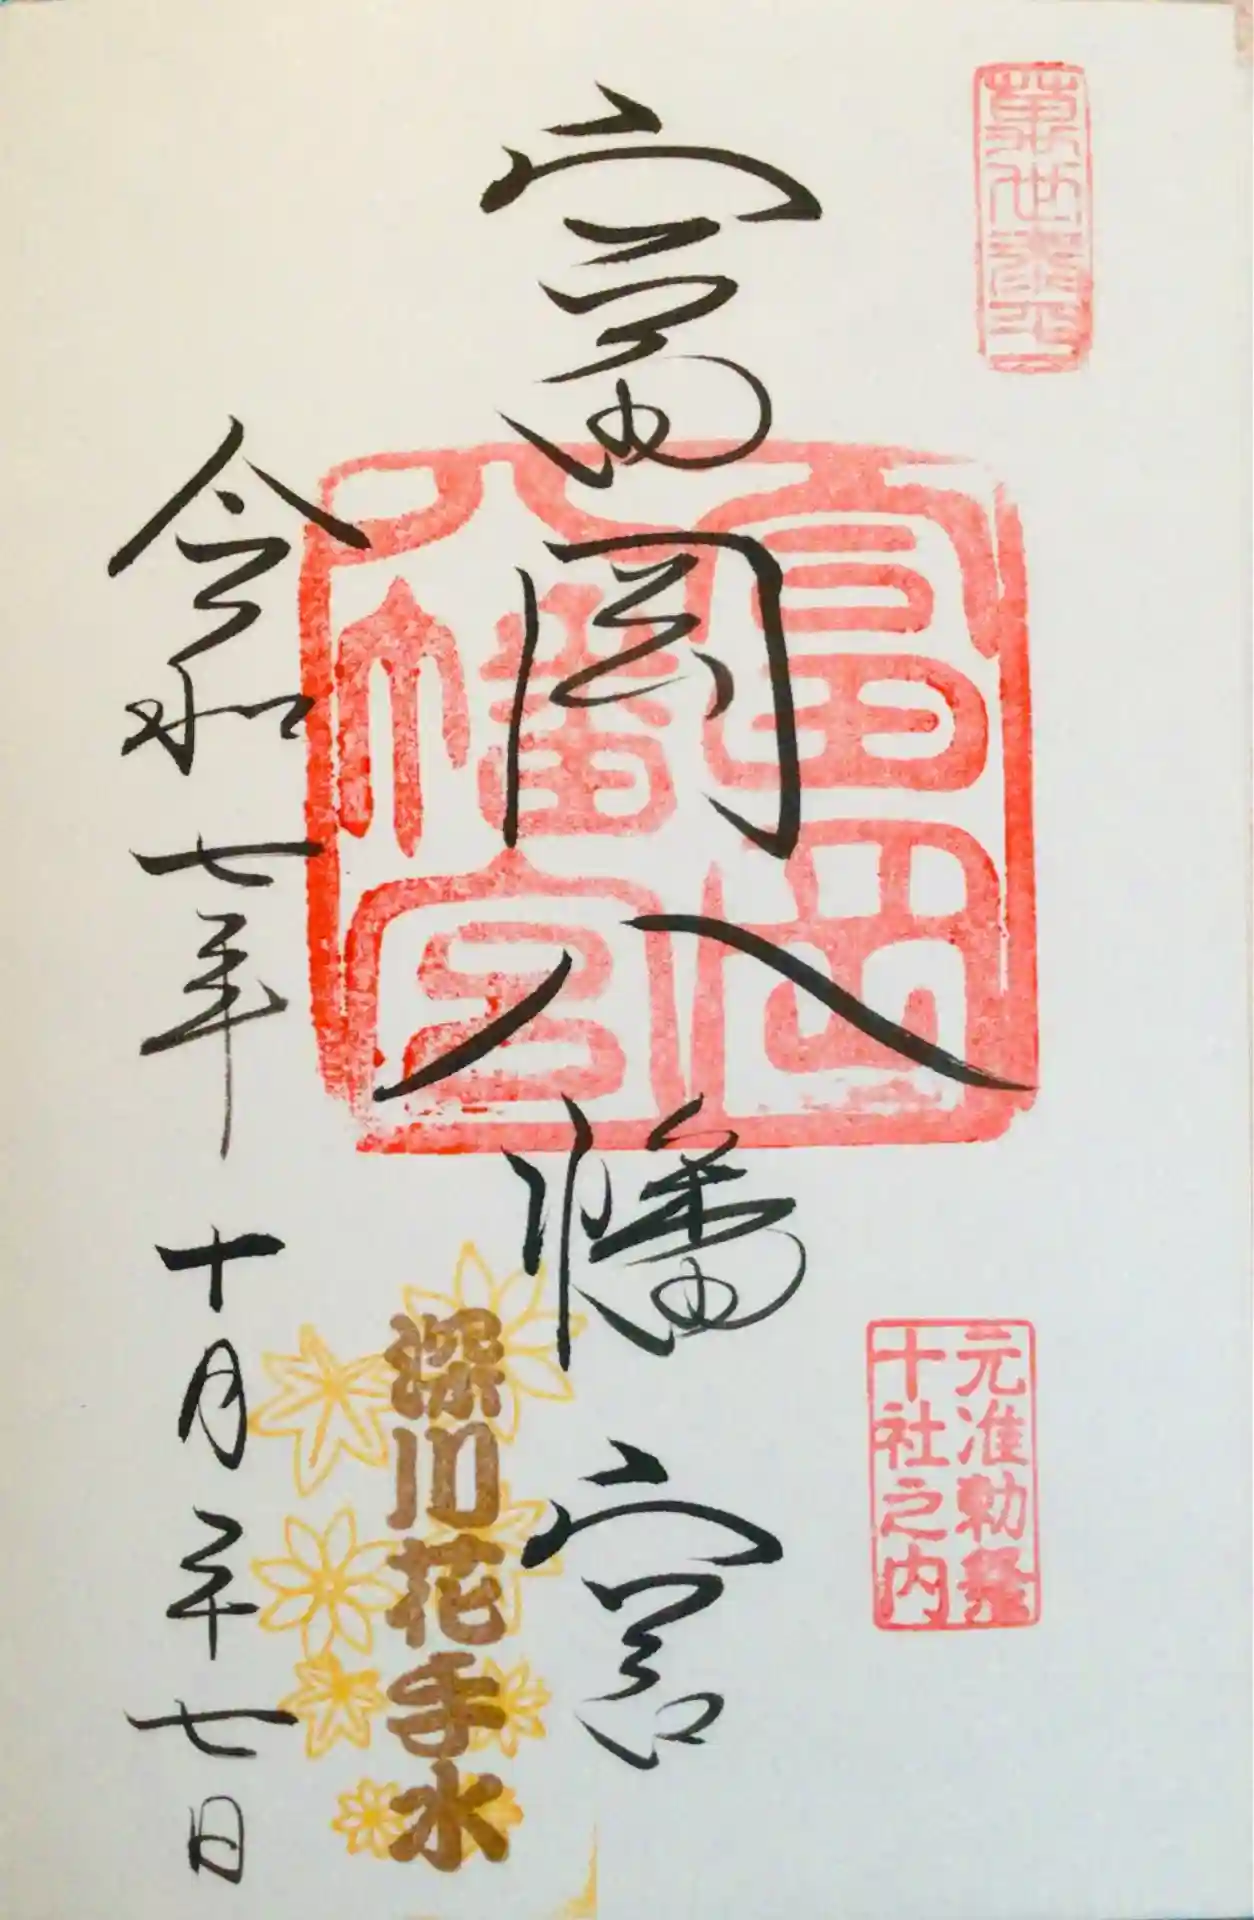 萬世泰平
富岡八幡宮
富岡
八幡宮
元准勅祭
十社之内
深川花手水
令和七年十月二十七日